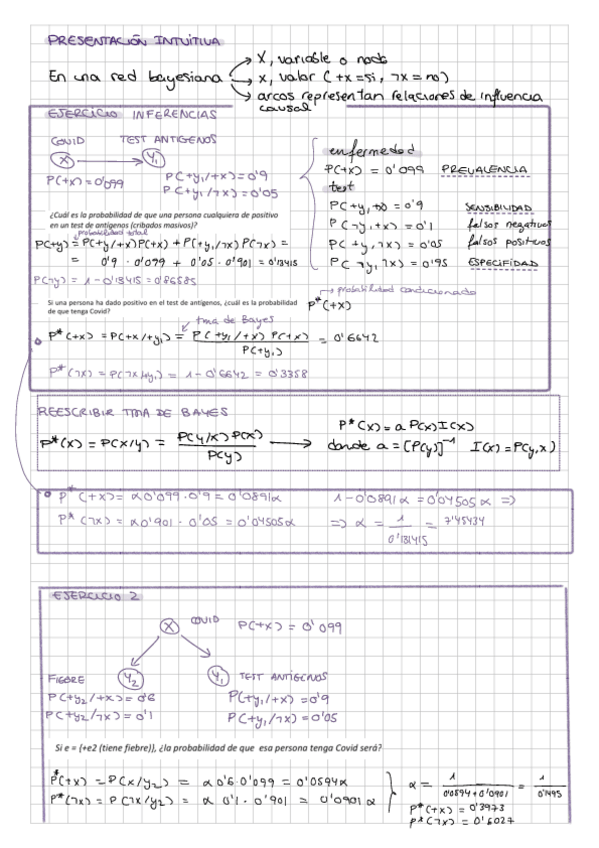 PRESENTACIÓN INTUITIVA
En una red bayesiana
X, variable o nodo
x, valor (+x=si, ¬x=no)
arcos representan relaciones de influencia
causal
EJERCICIO INFERENCIAS
COVID TEST ANTIGENOS
X Y₁
P(+x)=0'099
P(+y₁/+x)=0'9
P(+y₁/¬x)=0'05
enfermedad
P(+x)=0'099 PREVALENCIA
test
P(+y₁,+x)=0'9 SENSIBILIDAD
P(¬y₁,+x)=0'1 falsos negativos
P(+y₁,¬x)=0'05 falsos positivos
P(¬y₁,¬x)=0'95 ESPECIFIDAD
¿Cuál es la probabilidad de que una persona cualquiera de positivo
en un test de antígenos (cribados masivos)?
probabilidad total
P(+y)=P(+y/+x)P(+x)+P(+y₁/¬x)P(¬x)=
= 0'9 · 0'079 + 0'05 · 0'901 = 0'13415
P(¬y)= 1-0'13415=0'86585
probabilidad condicionada
Si una persona ha dado positivo en el test de antígenos, ¿cuál es la probabilidad
de que tenga Covid?
P*(+x)
tma de Bayes
P*(+x)=P(+x/+y₁)= P(+y₁/+x) P(+x) / P(+y₁) = 0'6642
P*(¬x)=P(¬x/+y₁)= 1-0'6642 = 0'3358
REESCRIBIR TMA DE BAYES
P*(x)=P(x/y)= P(y/x)P(x) / P(y)
P*(x)=a P(x)I(x)
donde a=[P(y)]⁻¹ I(x)=P(y,x)
P*(+x)= α0'099·0'9=0'0891α
P*(¬x)= α0'901·0'05=0'04505α
1-0'0891α=0'04505α =>
=> α = 1 / 0'131415 = 7'45434
EJERCICIO 2
X COVID P(+x)=0'099
FIEBRE Y₂ Y₁ TEST ANTÍGENOS
P(+y₂/+x)=0'6
P(+y₂/¬x)=0'1
P(+y₁/+x)=0'9
P(+y₁/¬x)=0'05
Si e = {+e2 (tiene fiebre)}, ¿la probabilidad de que esa persona tenga Covid será?
P*(+x)=P(x/y₂)= α0'6·0'099=0'0594α
P*(¬x)=P(¬x/y₂)= α 0'1·0'901 = 0'0901α
α = 1 / 0'0594+0'0901 = 1 / 0'1495
P*(+x)=0'3973
P*(¬x)=0'6027